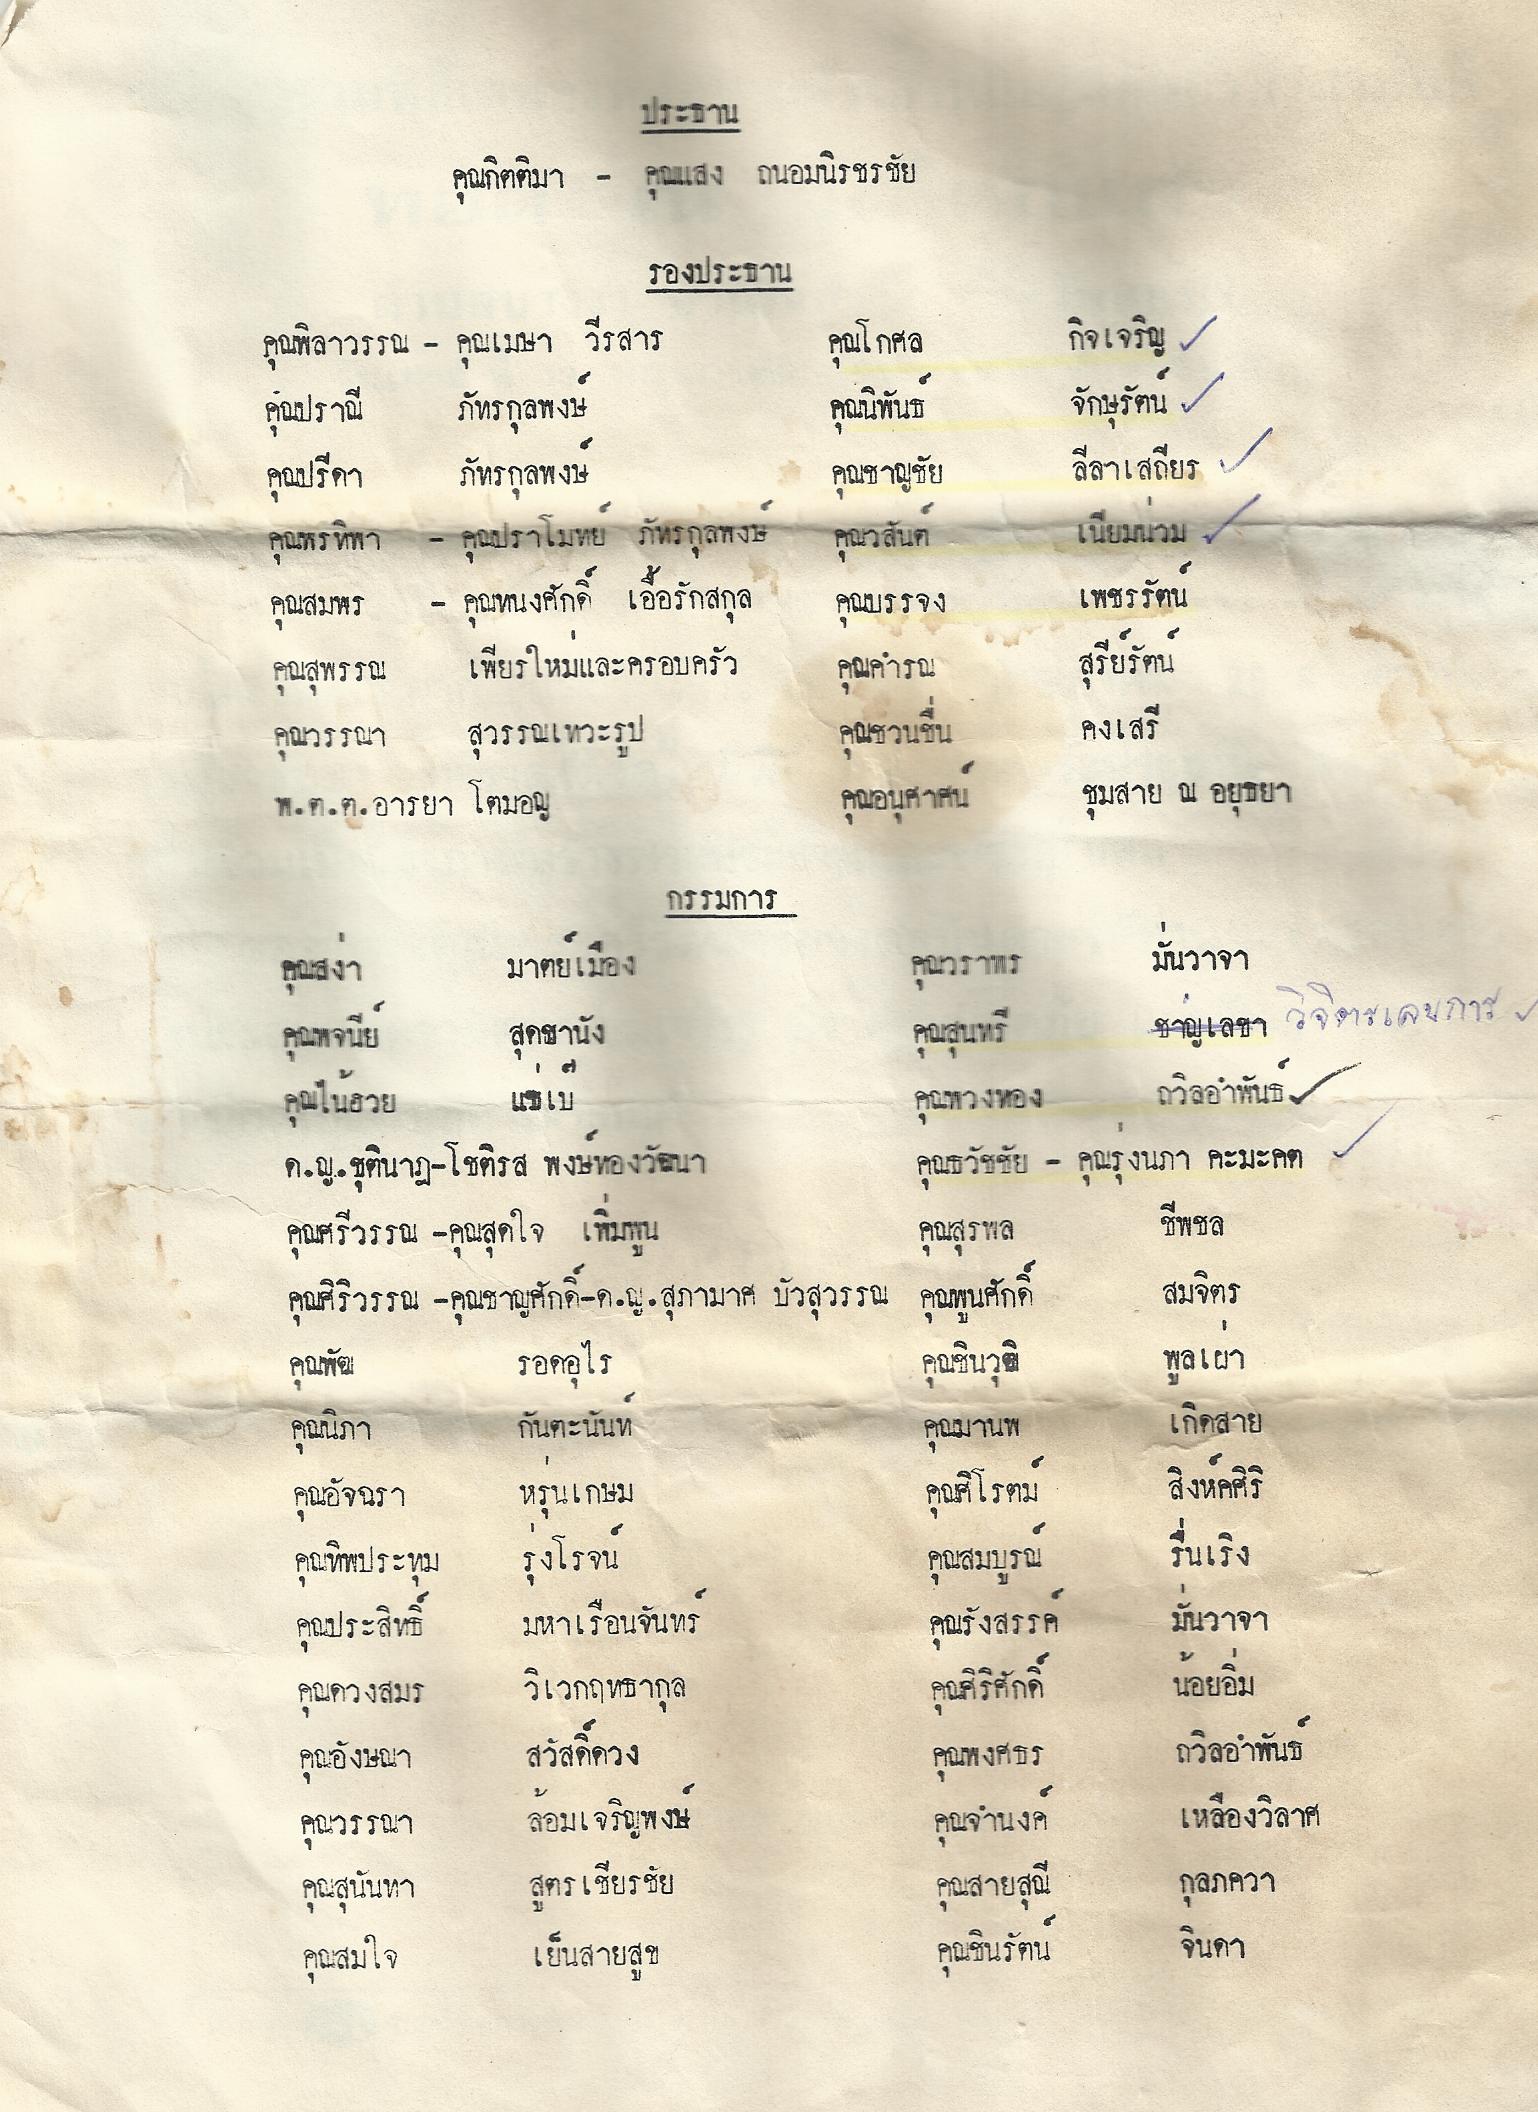 ประธาน
คุณกิตติมา - คุณแสง ถนอมนิรชรชัย
รองประธาน
คุณพิลาวรรณ - คุณเมษา วีรสาร คุณโกศล กิจเจริญ
คุณปราณี ภัทรกุลพงษ์ คุณนิพันธ์ จักษุรัตน์
คุณปรีดา ภัทรกุลพงษ์ คุณชาญชัย ลีลาเสถียร
คุณพรทิพา - คุณปราโมทย์ ภัทรกุลพงษ์ คุณวสันต์ เนียมน่วม
คุณสมพร - คุณทนงศักดิ์ เอื้อรักสกุล คุณบรรจง เพชรรัตน์
คุณสุพรรณ เพียรใหม่และครอบครัว คุณดำรณ สุรีย์รัตน์
คุณวรรณา สุวรรณเทวะรูป คุณชวนชื่น คงเสรี
พ.ต.ต.อารยา โตมอญ คุณอนุศาศน์ ชุมสาย ณ อยุธยา
กรรมการ
คุณสง่า มาตย์เมือง คุณวราพร มั่นวาจา
คุณพจนีย์ สุดชานัง คุณสุนทรี ชาญเลขา วิจิตรเลขการ
คุณไน้ฮวย แซ่เบ๊ คุณพวงทอง ถวิลอำพันธ์
ด.ญ.ชุตินาฏ-โชติรส พงษ์ทองวัฒนา คุณธวัชชัย - คุณรุ่งนภา คะมะคต
คุณศรีวรรณ -คุณสุดใจ เพิ่มพูน คุณสุรพล ชีพชล
คุณศิริวรรณ -คุณชาญศักดิ์-ด.ญ.สุภามาศ บัวสุวรรณ คุณพูนศักดิ์ สมจิตร
คุณพัฒ รอดอุไร คุณชินวุฒิ พูลเผ่า
คุณนิภา กันตะนันท์ คุณมานพ เกิดสาย
คุณอัจฉรา หรุ่นเกษม คุณศิโรตม์ สิงห์คศิริ
คุณทิพประทุม รุ่งโรจน์ คุณสมบูรณ์ รื่นเริง
คุณประสิทธิ์ มหาเรือนจันทร์ คุณรังสรรค์ มั่นวาจา
คุณดวงสมร วิเวกฤทธากุล คุณศิริศักดิ์ น้อยอิ่ม
คุณอังษณา สวัสดิ์ดวง คุณพงศธร ถวิลอำพันธ์
คุณวรรณา ล้อมเจริญพงษ์ คุณจำนงค์ เหลืองวิลาศ
คุณสุนันทา สูตรเชียรชัย คุณสายสุณี กุลภควา
คุณสมใจ เย็นสายสูข คุณชินรัตน์ จินดา